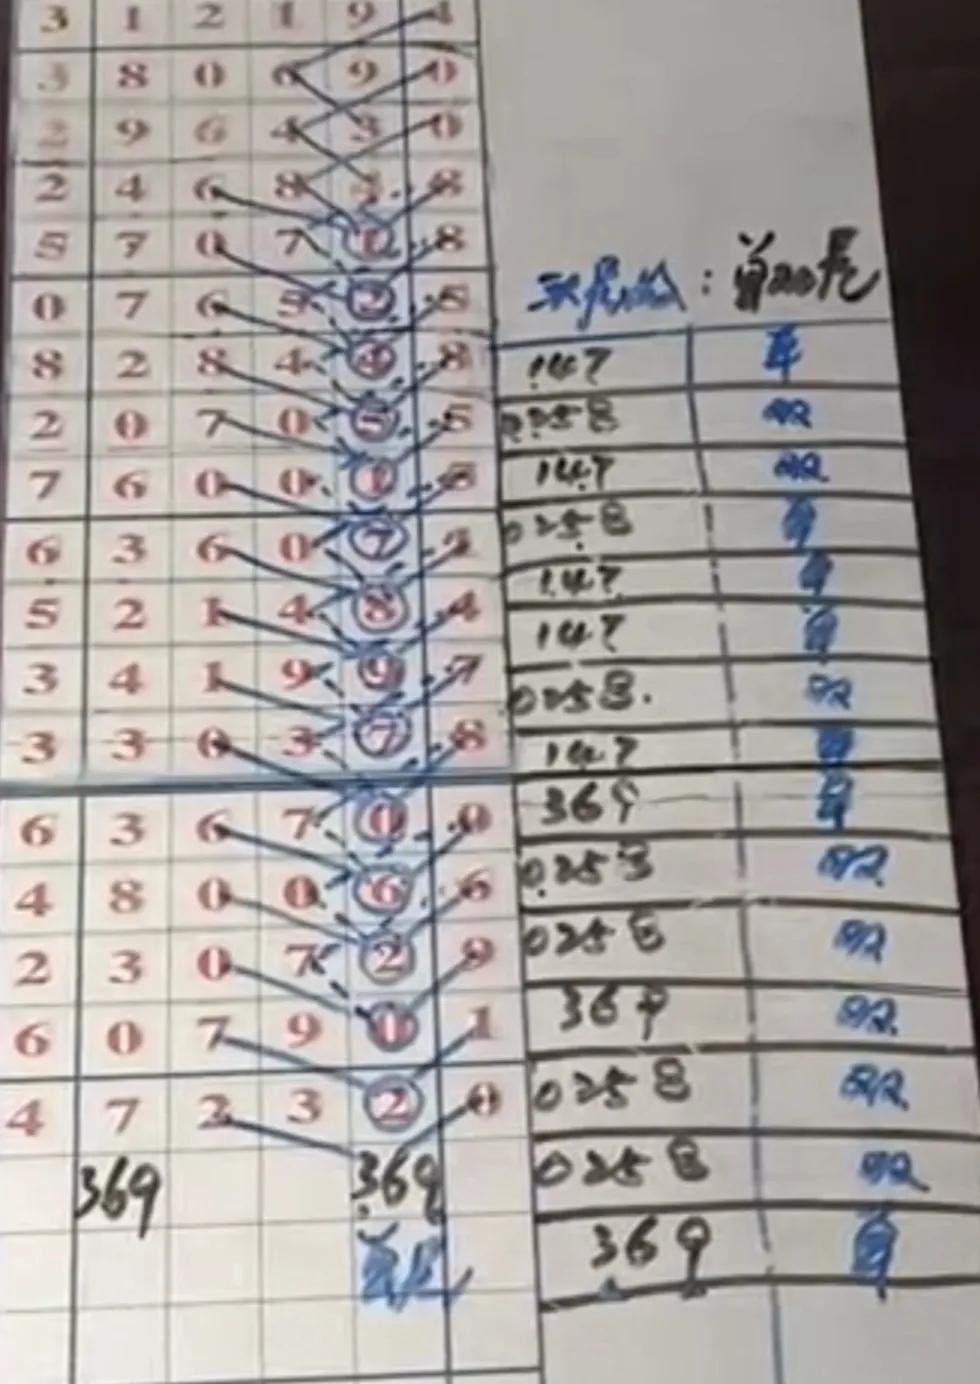 3 1 2 1 9 4
3 8 0 6 9 0
2 9 6 4 3 0
2 4 6 8 8
5 7 0 7 1 8
0 7 6 5 2 5
:单双尾
8 2 8 4 4 8 147 单
2 0 7 0 5 5 0258 双
7 6 0 0 1 5 147 双
6 3 6 0 7 0258 单
5 2 1 4 8 4 147 单
3 4 1 9 9 7 147 单
0258. 双
3 3 0 3 7 8 147 单
6 3 6 7 0 0 369 单
4 8 0 0 6 6 0258 双
2 3 0 7 2 9 0258 双
6 0 7 9 0 1 369 双
4 7 2 3 2 0 0258 双
369 369 0258 双
单尾 369 单